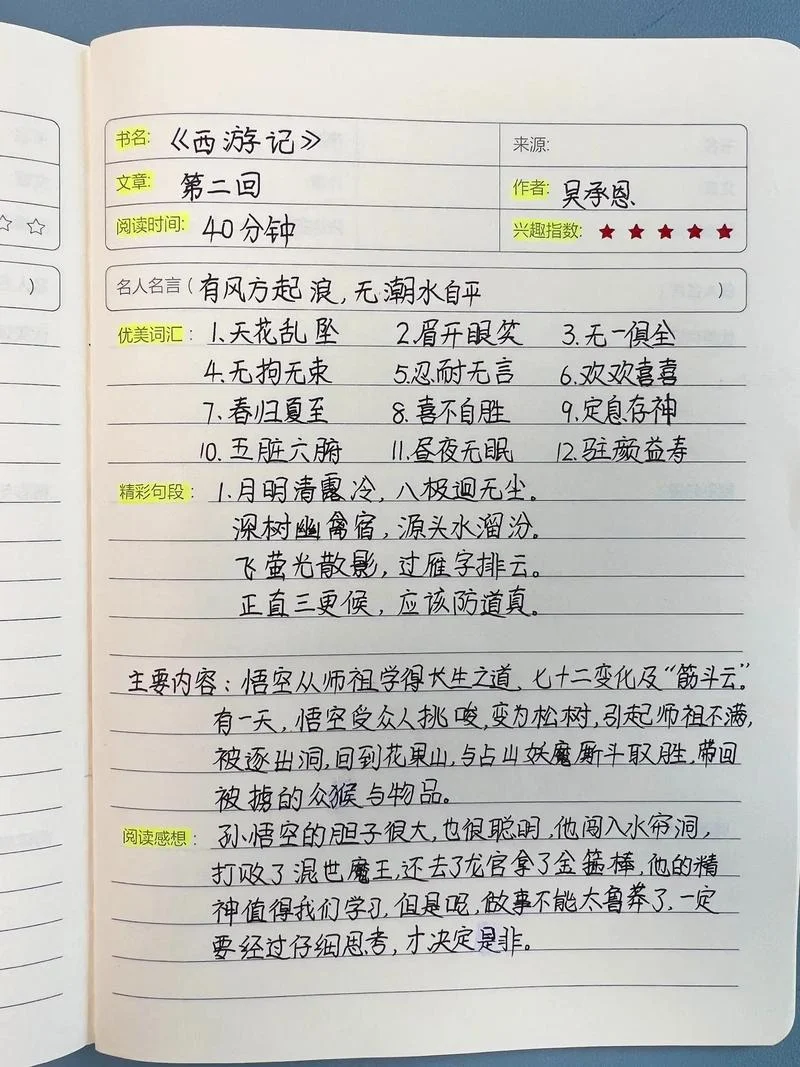 书名: 《西游记》 来源:
文章: 第二回 作者: 吴承恩
阅读时间: 40分钟 兴趣指数: ★★★★★
名人名言( 有风方起浪,无潮水自平 )
优美词汇: 1.天花乱坠 2.眉开眼笑 3.无一俱全
4.无拘无束 5.忍耐无言 6.欢欢喜喜
7.春归夏至 8.喜不自胜 9.定息存神
10.五脏六腑 11.昼夜无眠 12.驻颜益寿
精彩句段: 1.月明清露冷,八极迥无尘。
深树幽禽宿,源头水溜汾。
飞萤光散影,过雁字排云。
正直三更候,应该防道真。
主要内容:悟空从师祖学得长生之道、七十二变化及“筋斗云”。
有一天,悟空受众人挑唆,变为松树,引起师祖不满,
被逐出洞,回到花果山,与占山妖魔厮斗取胜,带回
被掳的众猴与物品。
阅读感想: 孙悟空的胆子很大,也很聪明,他闯入水帘洞,
打败了混世魔王,还去了龙宫拿了金箍棒,他的精
神值得我们学习,但是呢,做事不能太鲁莽了,一定
要经过仔细思考,才决定是非。